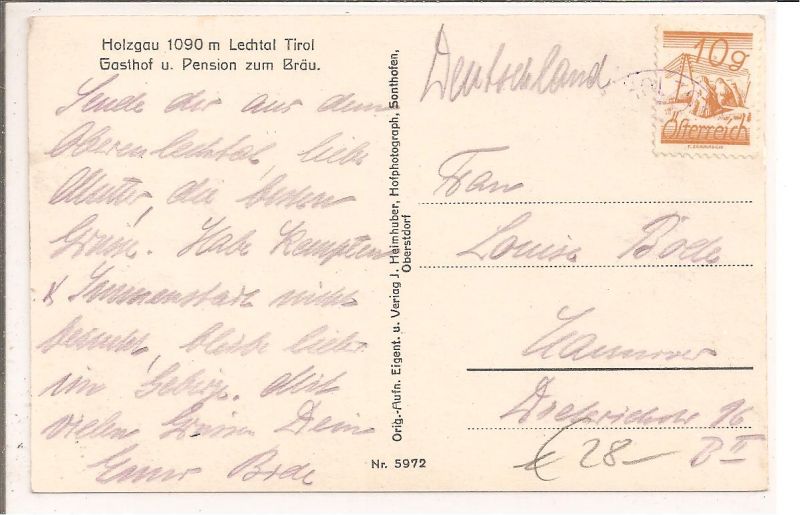 Holzgau 1090 m Lechtal Tirol
Gasthof u. Pension zum Bräu.
Sende dir aus dem
Oberenlechtal, liebe
Mutter, die besten
Grüsse. Habe Kempten
& Immenstadt nicht
besucht, bleibe lieber
im Gebirge. Mit
vielen Grüssen Dein
Bode
Nr. 5972
Orig.-Aufn. Eigent. u. Verlag J. Heimhuber, Hofphotograph, Sonthofen,
Oberstdorf
Deutschland
10g
Österreich
Frau
Louise Bode
Hannover
96
€ 28 —
B II